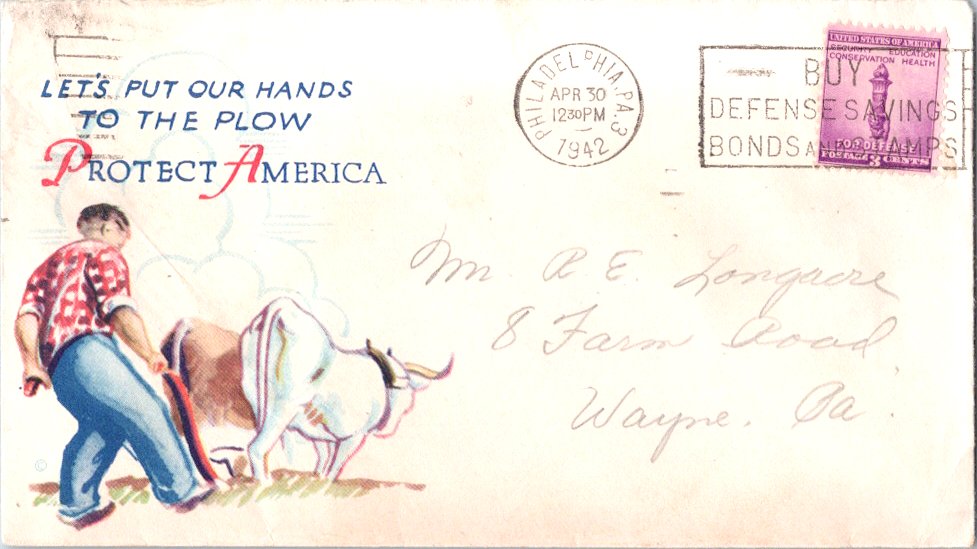 LET'S PUT OUR HANDS
TO THE PLOW
PROTECT AMERICA
PHILADELPHIA, PA. 3
APR 30
12 30 PM
1942
BUY
DEFENSE SAVINGS
BONDS AND STAMPS
UNITED STATES OF AMERICA
SECURITY EDUCATION
CONSERVATION HEALTH
FOR DEFENSE
POSTAGE 3 CENTS
Mr R. E. Longacre
8 Farm Road
Wayne, Pa.
©